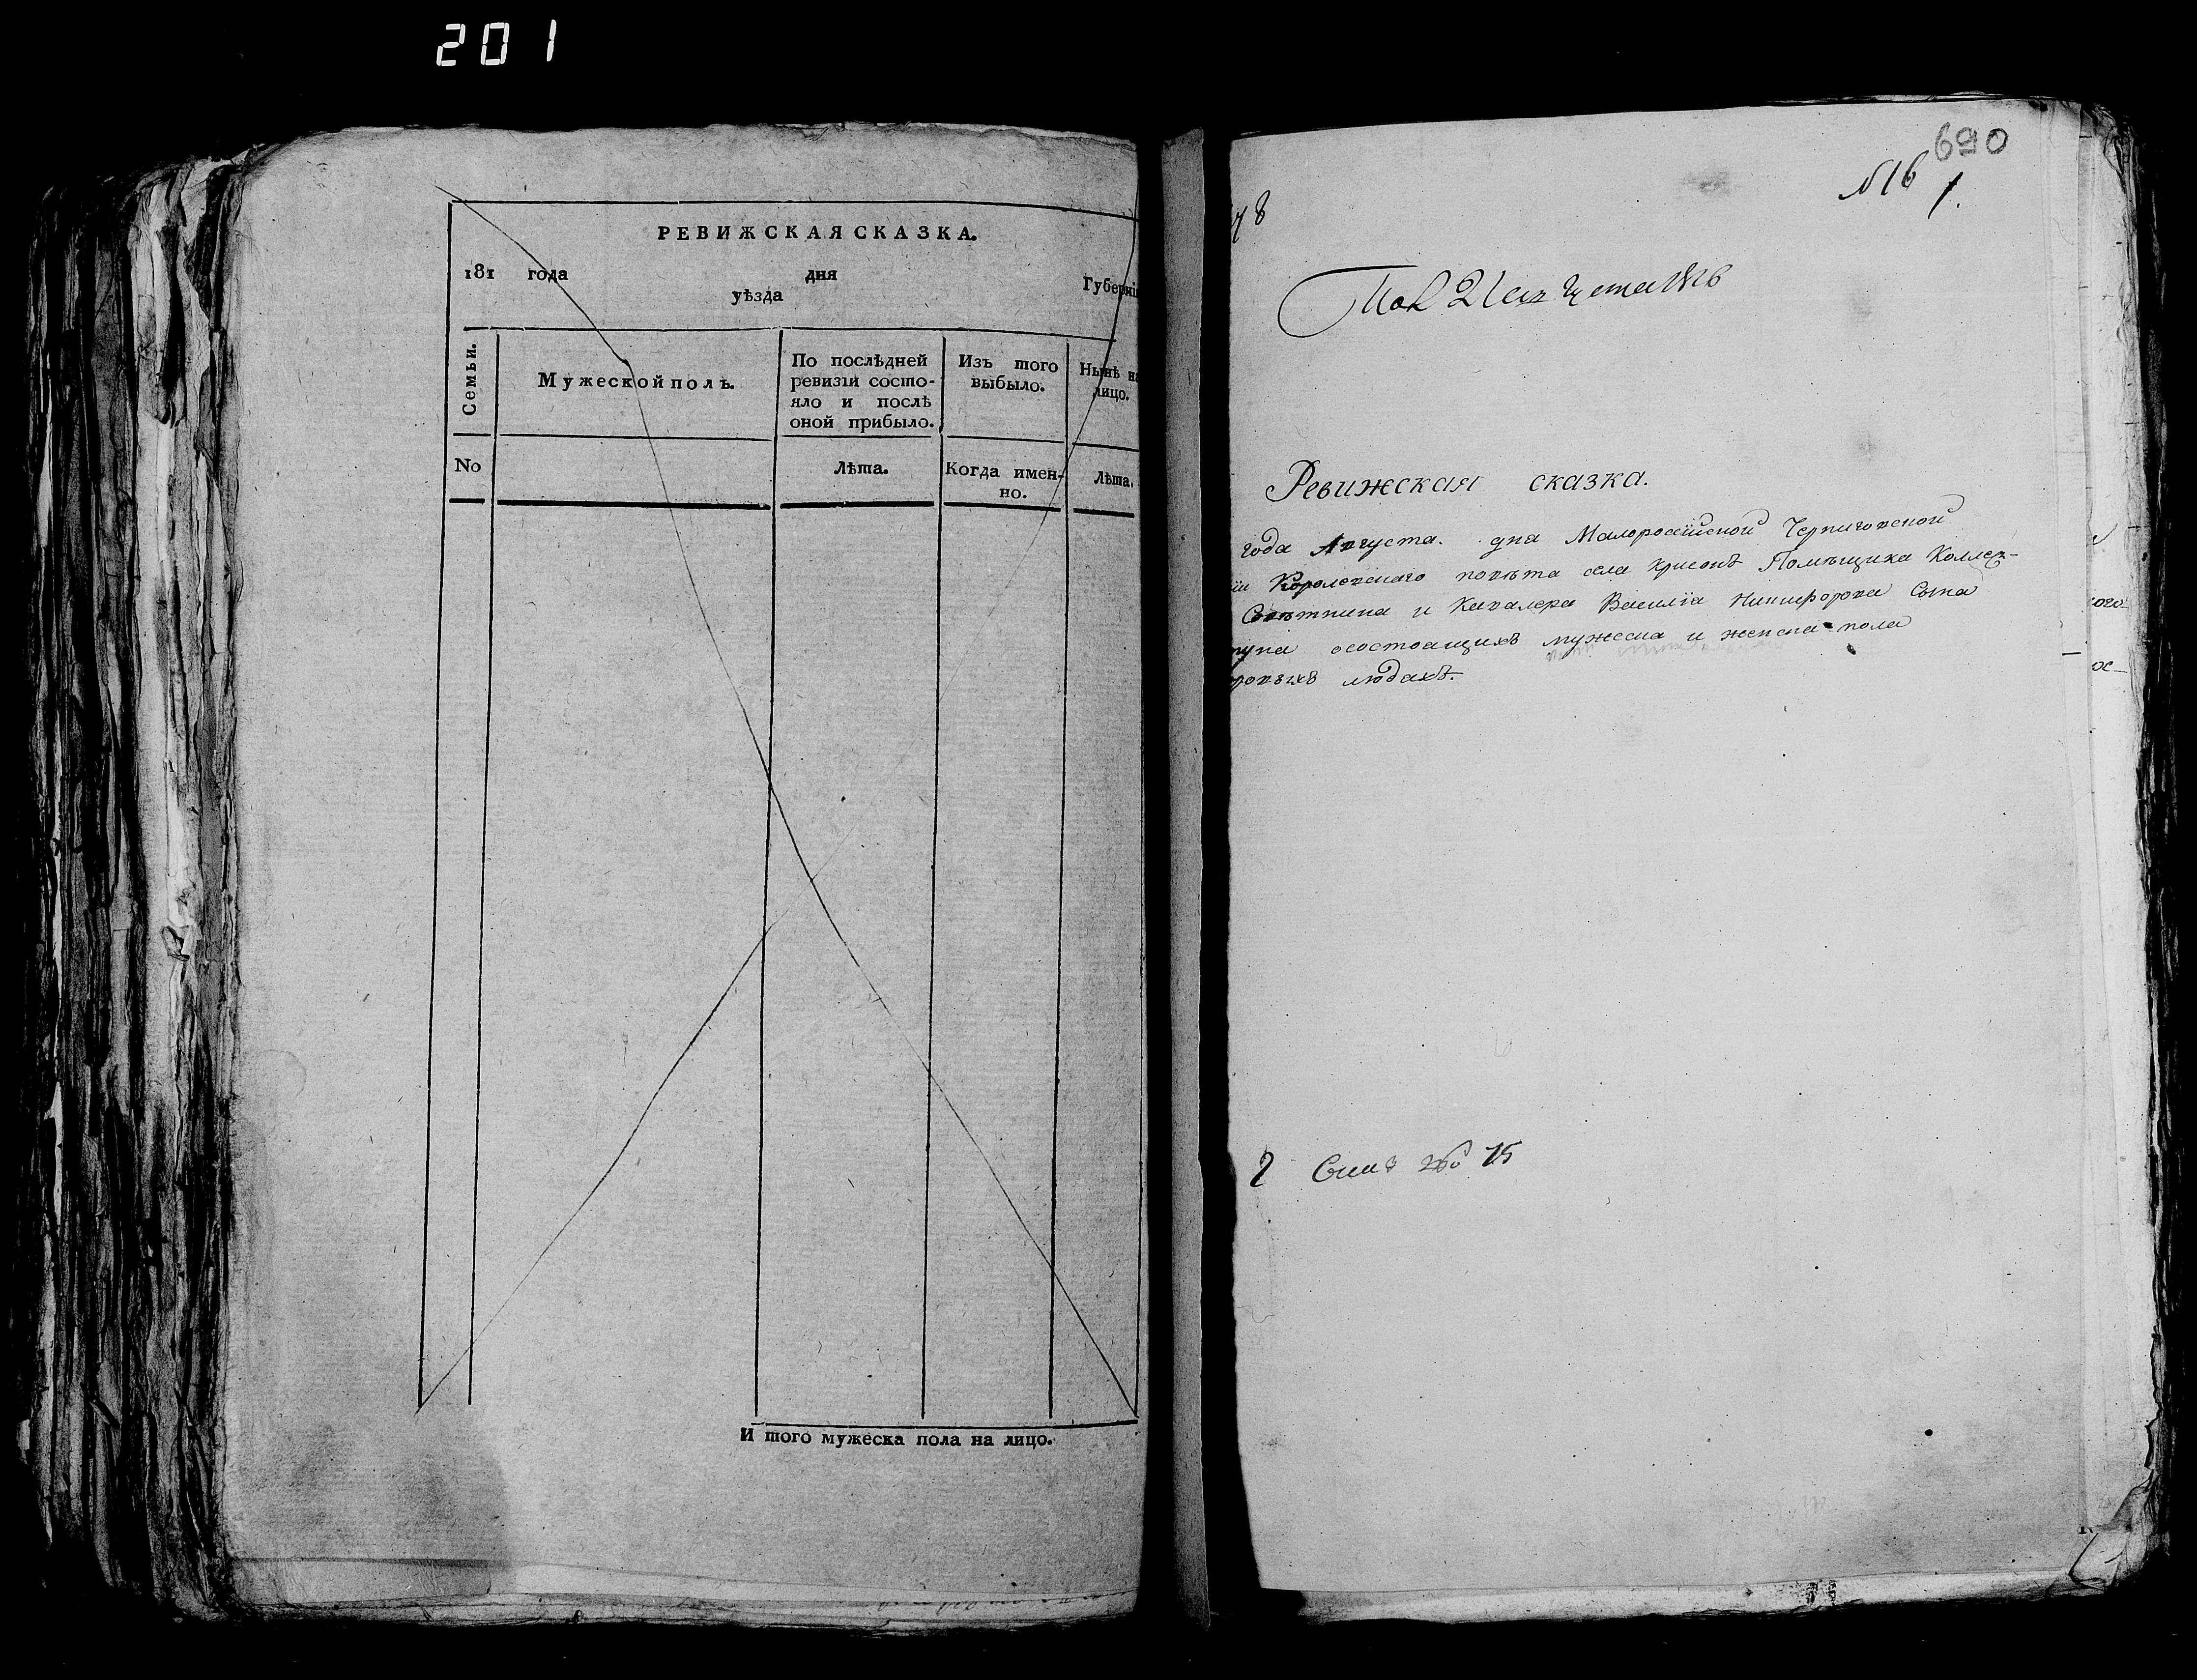 201
РЕВИЖСКАЯ СКАЗКА.
181 года дня Губерніи
уѣзда
Семьи.
Мужеской полъ.
По послѣдней
ревизіи состо-
яло и послѣ
оной прибыло.
Изъ того
выбыло.
Нынѣ на
лицо.
No
Лѣта.
Когда имен-
но.
Лѣта.
И того мужеска пола на лицо.
690
№ 16
1.
78
Пол 21
Ревижская сказка.
года Августа. дня Малороссійской Черниговской
іи Королевскаго повѣта села Помѣщика Коллеж-
Совѣтника и Кавалера Василія Никифорова Сына
осостоящихъ мужеска и женска пола
людахъ.
2
15